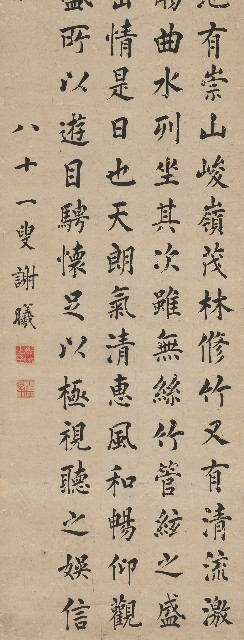 有崇山峻嶺茂林修竹又有清流激
曲水列坐其次雖無絲竹管絃之盛
情是日也天朗氣清惠風和暢仰觀
盛所以遊目騁懷足以極視聽之娛信
八十一叟謝曦